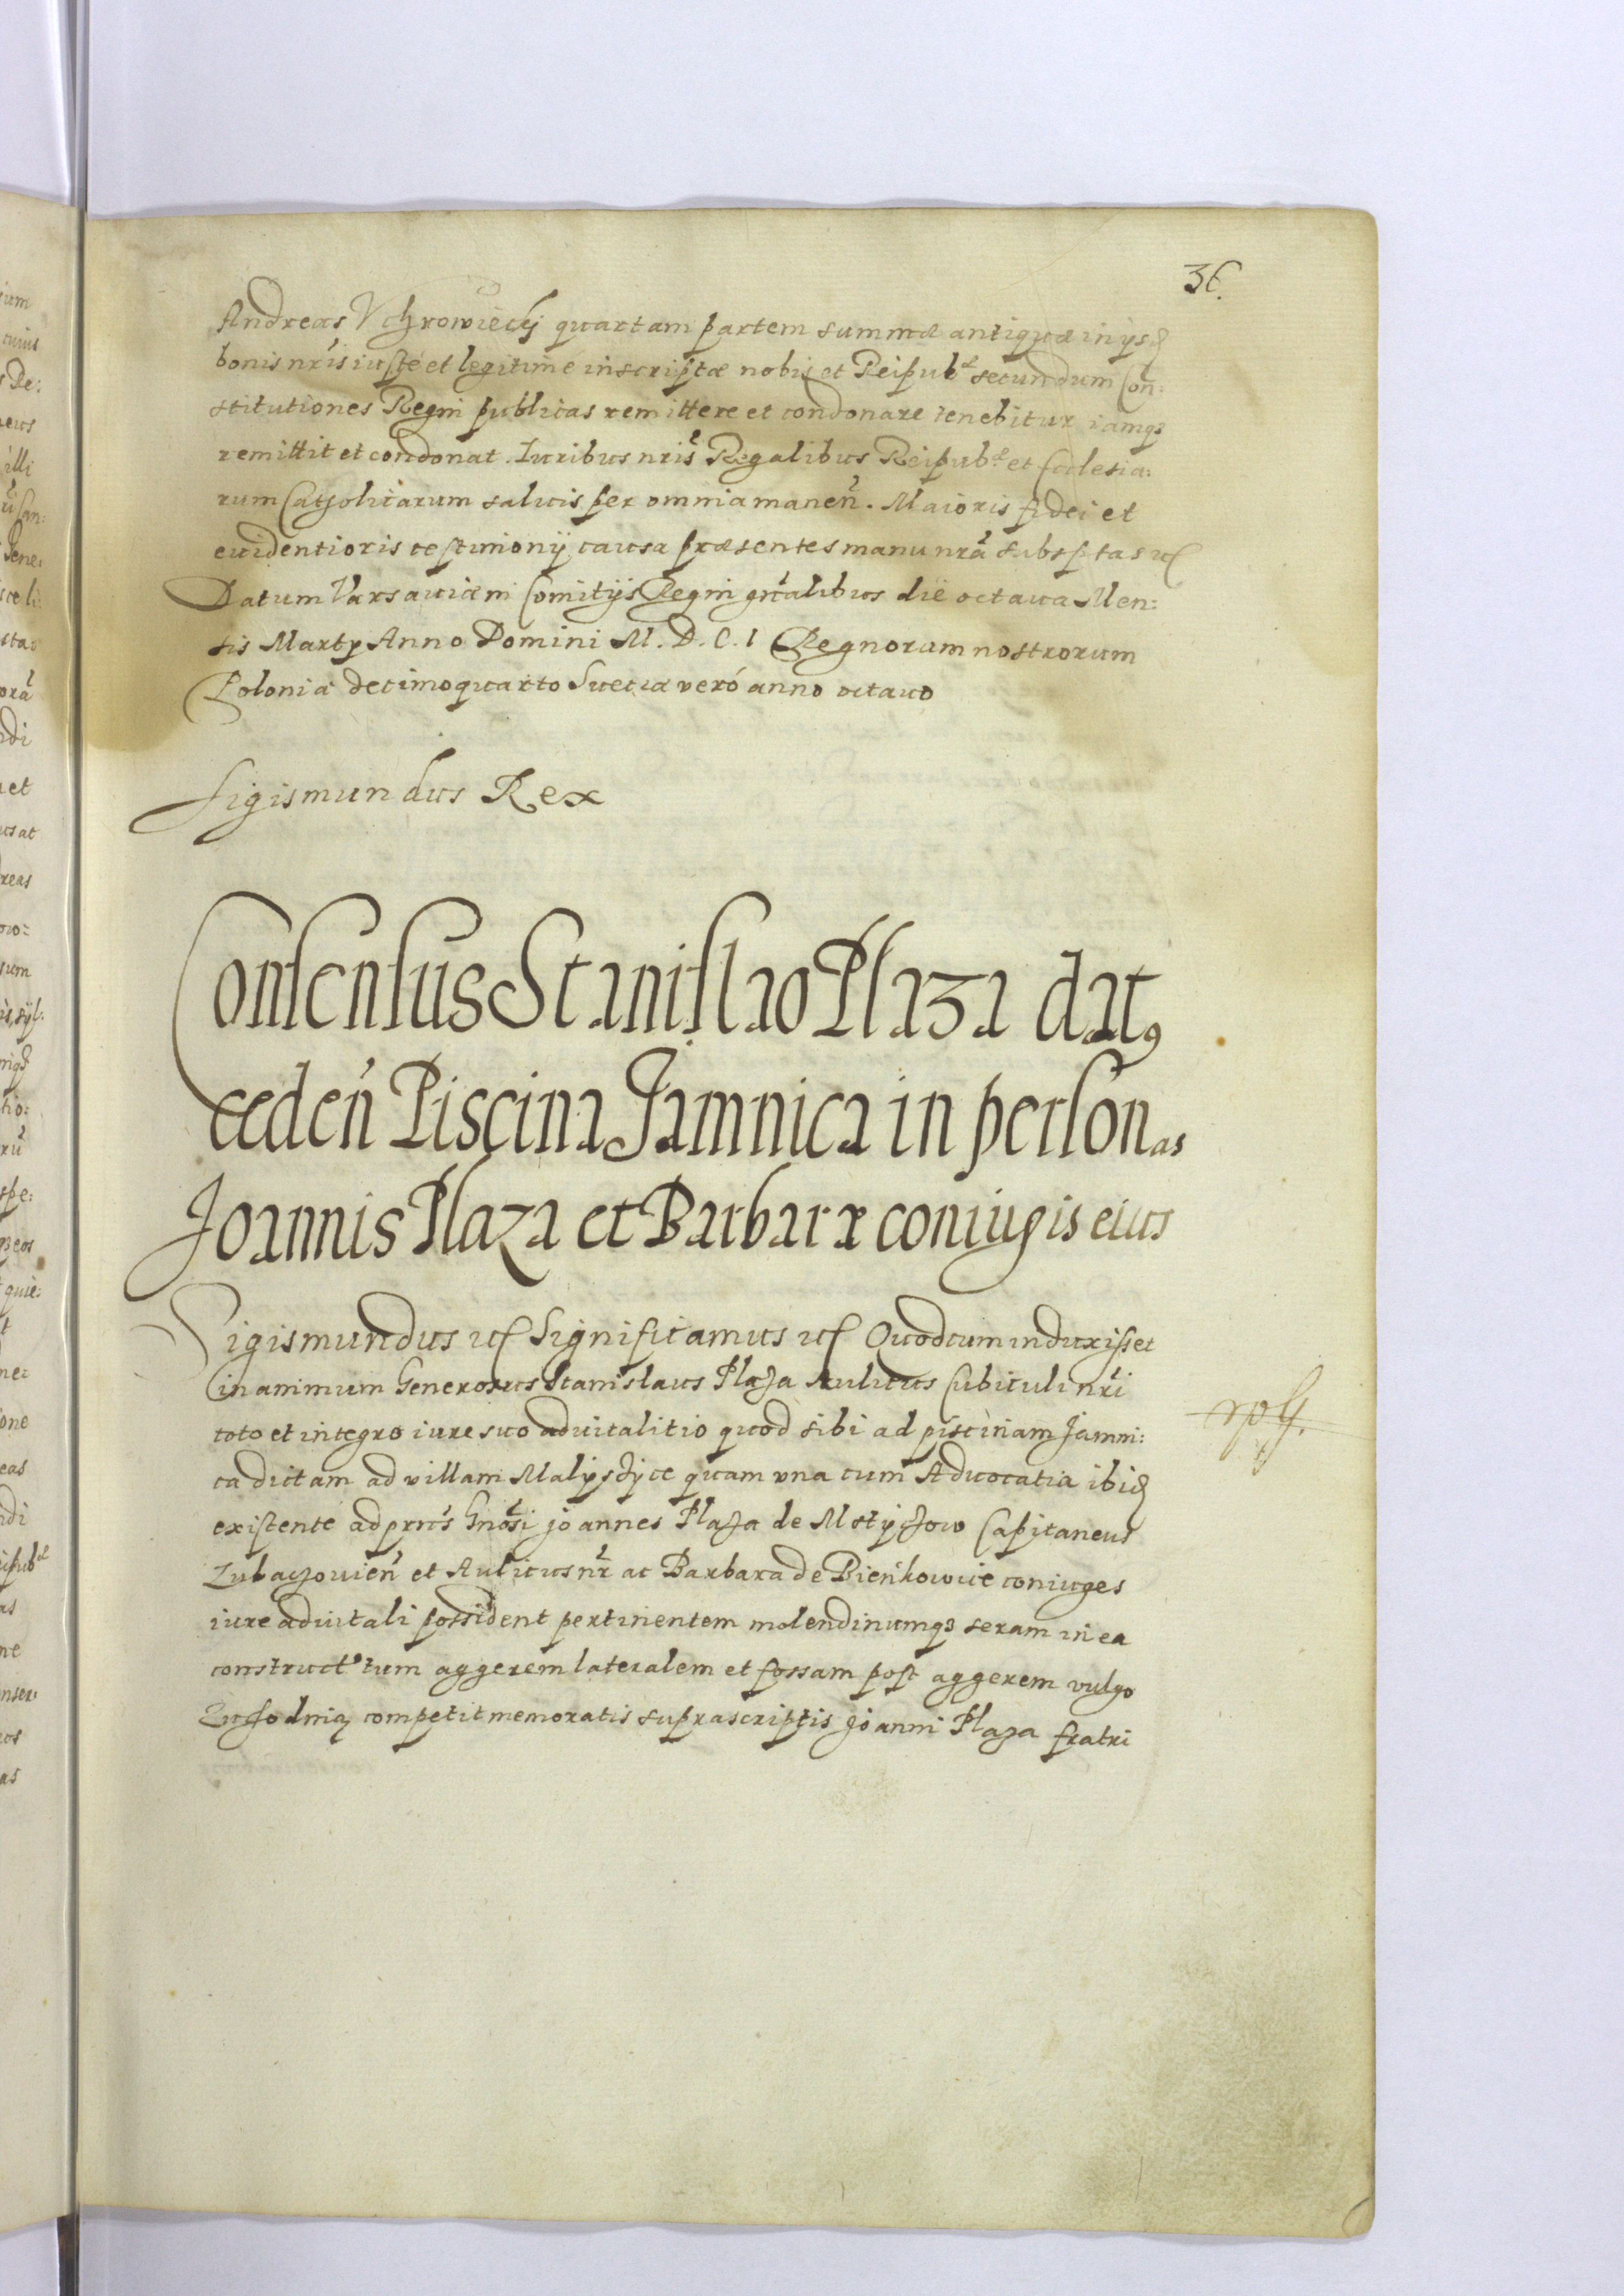 36.
Andreas Vchrowiecky quartam partem summæ antiquæ in ijsd
bonis nris iusté et legitimé inscriptæ nobis et Reipub. secundum Con:
stitutiones Regni publicas remittere et condonare tenebitur iamq3
remittit et condonat. Iuribus nris Regalibus Reipub. et Ecclesia:
rum Catholicarum saluis per omnia manen. Maioris fidei et
euidentioris testimonij causa præsentes manu nra subsptas etc
Datum Varsauiæ in Comitijs Regni gnalibus die octaua Men:
sis Martij Anno Domini M.D.C.I Regnorum nostrorum
Poloniæ decimoquarto Sueciæ veró anno octauo
Sigismundus Rex
Consensus Stanislao Plaza dat9
ceden Piscina Jamnica in personas
Joannis Plaza et Barbaræ coniugis eius
Sigismundus etc Significamus etc Quod cum induxisset
in animum Generosus Stanislaus Plaza Aulicus Cubiculi nri
toto et integro iure suo aduitalitio quod sibi ad piscinam Jamni:
ca dictam ad villam Malyszyce quam vna cum Aduocatia ibid
existente ad prns Gnosi Joannes Plaza de Mstyczow Capitaneus
Lubaczouien et Aulicus nr ac Barbara de Bienkowice coniuges
iure aduitali possident pertinentem molendinumq3 seram in ea
construct tum aggerem lateralem et fossam post aggerem vulgo
competit memoratis suprascriptis Joanni Plaza fratri